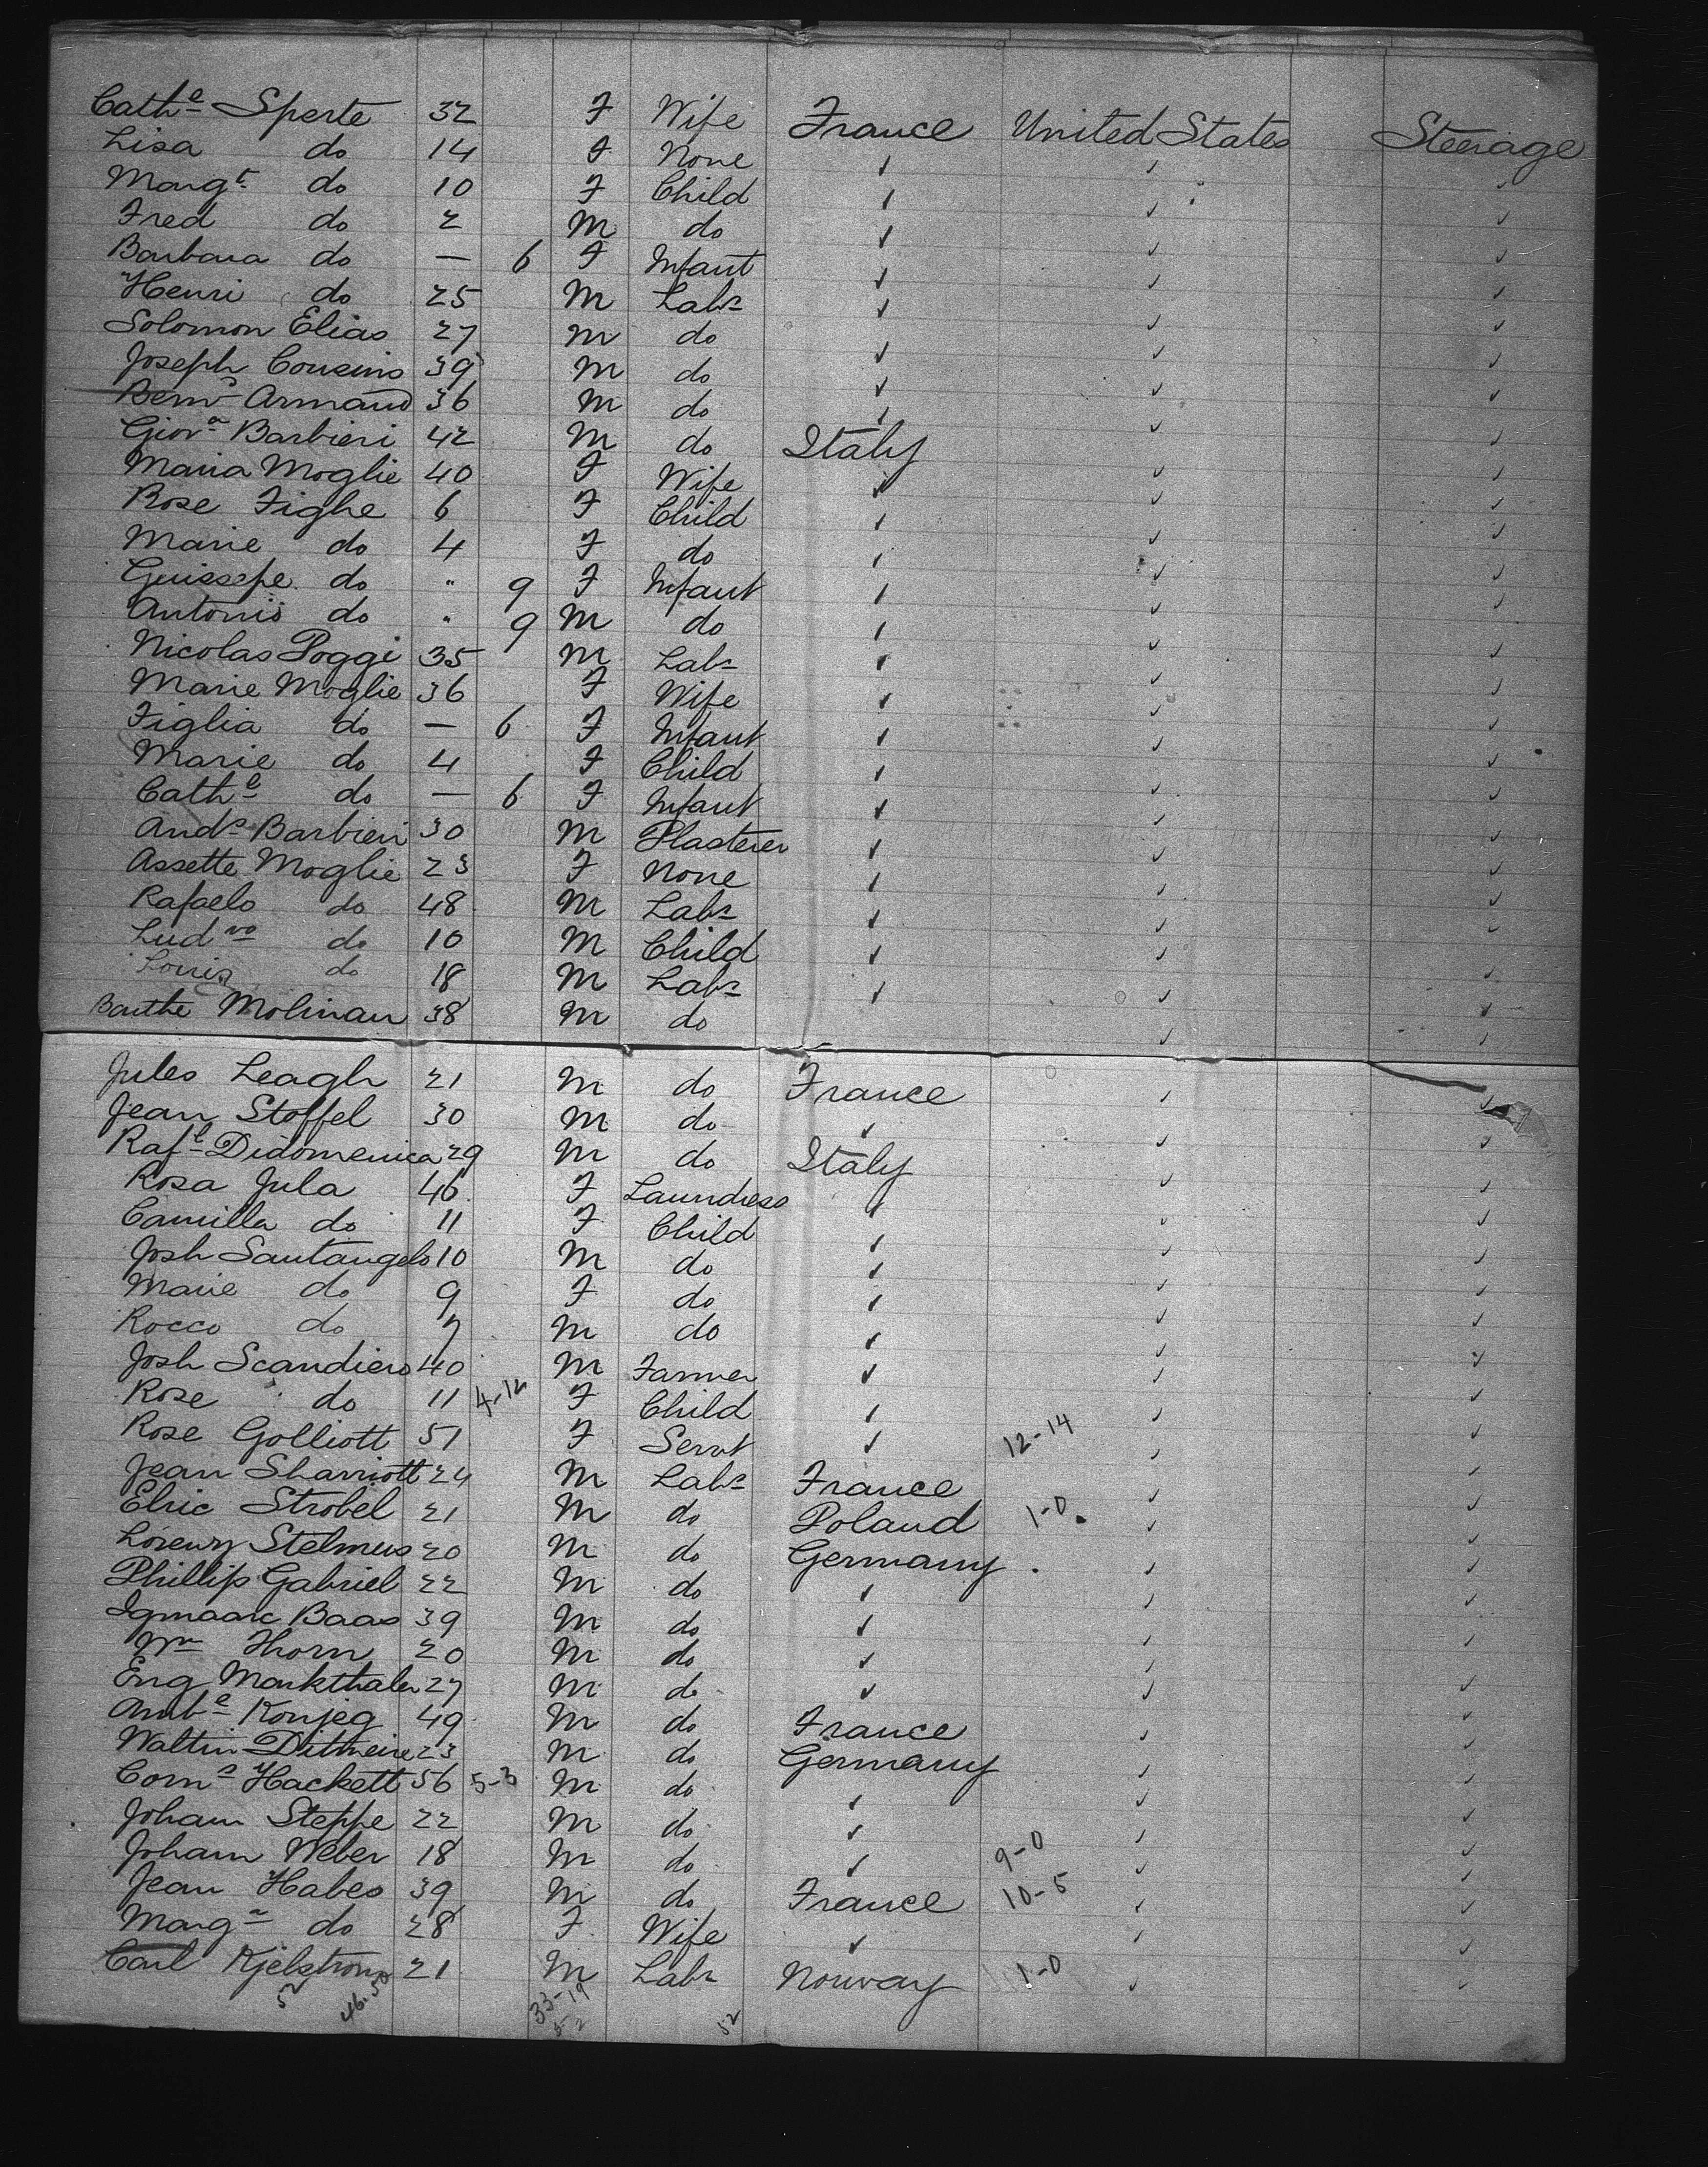 Cathe Sperte 32 F Wife France United States Steerage
Lisa do 14 F None ✓ ✓ ✓
Margt do 10 F Child ✓ ✓ ✓
Fred do 2 M do ✓ ✓ ✓
Barbara do — 6 F Infant ✓ ✓ ✓
Henri do 25 M Labr ✓ ✓ ✓
Solomon Elias 27 M do ✓ ✓ ✓
Joseph Cousins 39 M do ✓ ✓ ✓
Armand 36 M do ✓ ✓ ✓
Giova Barbieri 42 M do Italy ✓ ✓
Maria Moglie 40 F Wife ✓ ✓ ✓
Rose Fighe 6 F Child ✓ ✓ ✓
Marie do 4 F do ✓ ✓ ✓
Guissepe do " 9 F Infant ✓ ✓ ✓
Antonio do " 9 M do ✓ ✓ ✓
Nicolas Poggi 35 M Labr ✓ ✓ ✓
Marie Moglie 36 F Wife ✓ ✓ ✓
Figlia do — 6 F Infant ✓ ✓ ✓
Marie do 4 F Child ✓ ✓ ✓
Cathe do — 6 F Infant ✓ ✓ ✓
Ands Barbieri 30 M Plasterer ✓ ✓ ✓
Assette Moglie 23 F None ✓ ✓ ✓
Rafaelo do 48 M Labr ✓ ✓ ✓
Ludvo do 10 M Child ✓ ✓ ✓
Louis do 18 M Labr ✓ ✓ ✓
Barthe Molinari 38 M do ✓ ✓
Jules Leagh 21 M do France ✓ ✓
Jean Stoffel 30 M do ✓ ✓ ✓
Rafl Didomenica 29 M do Italy ✓ ✓
Rosa Jula 46 F Laundress ✓ ✓ ✓
Camilla do 11 F Child ✓ ✓ ✓
Josh Santangelo 10 M do ✓ ✓ ✓
Marie do 9 F do ✓ ✓ ✓
Rocco do 7 M do ✓ ✓ ✓
Josh Scandiero 40 M Farmer ✓ ✓ ✓
Rose do 11 4-12 F Child ✓ ✓ ✓
Rose Golliott 51 F Servt ✓ 12-14 ✓ ✓
Jean Sharriott 24 M Labr France ✓ ✓
Elric Strobel 21 M do Poland 1-0 ✓ ✓
Stelmus 20 M do Germany ✓ ✓
Phillip Gabriel 22 M do ✓ ✓ ✓
Baas 39 M do ✓ ✓ ✓
Wm Thorn 20 M do ✓ ✓ ✓
Eng Markthaler 27 M do ✓ ✓ ✓
Ambe Konjeg 49 M do France ✓ ✓
Waltin 23 M do Germany ✓ ✓
Corns Hackett 56 5-3 M do ✓ ✓ ✓
Joham Steppe 22 M do ✓ ✓ ✓
Joham Weber 18 M do ✓ 9-0 ✓ ✓
Jean Habes 39 M do France 10-5 ✓ ✓
Marga do 28 F Wife ✓ ✓ ✓
Carl Kjelstrom 21 M Labr Norway 1-0 ✓ ✓
52 46.50 33-19 52